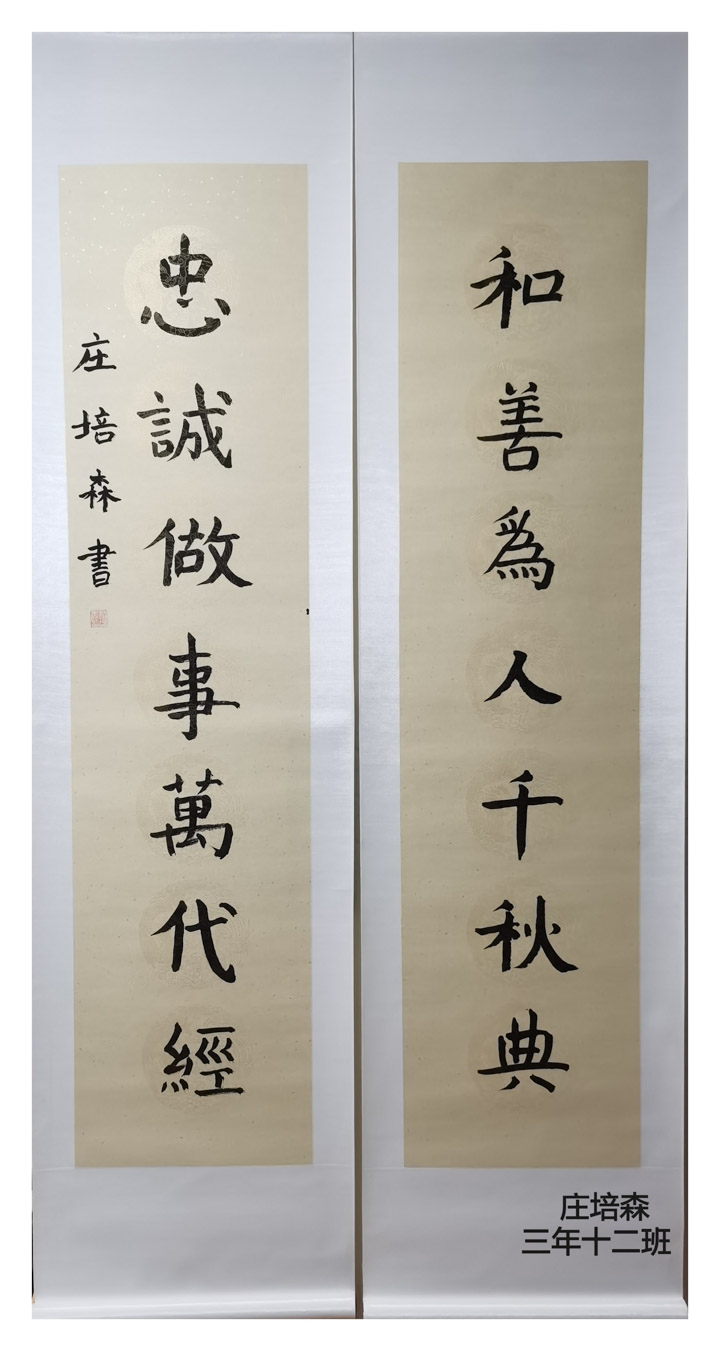 和善爲人千秋典
忠誠做事萬代經
庄培森書
庄培森
三年十二班